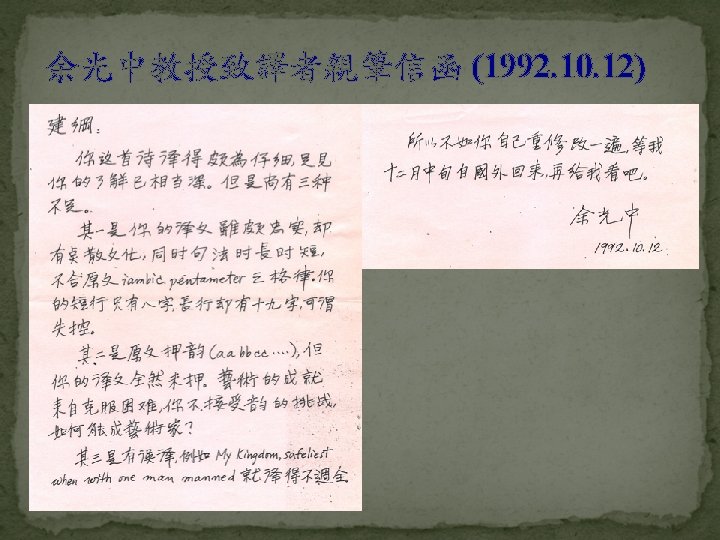 余光中教授致譯者親筆信函 (1992.10.12)
建綱：
你这首诗泽得颇為仔细,足見
你的了解已相当深。但是尚有三种
不足。
其一是你的泽文雖颇忠实,却
有点散文化,同时句法时長时短,
不合原文 iambic pentameter 之格律.你
的短行只有八字,長行却有十九字,可谓
失控。
其二是原文押韵(aabbcc....),但
你的泽文全然未押。藝術的成就
来自克服困难,你不接受韵的挑战,
如何能成藝術家?
其三是有误泽,例如 My Kingdom, safeliest
when with one man manned 就泽得不週全
所以不如你自己重修改一遍,等我
十二月中旬自國外回来,再给我看吧。
余光中
1992.10.12